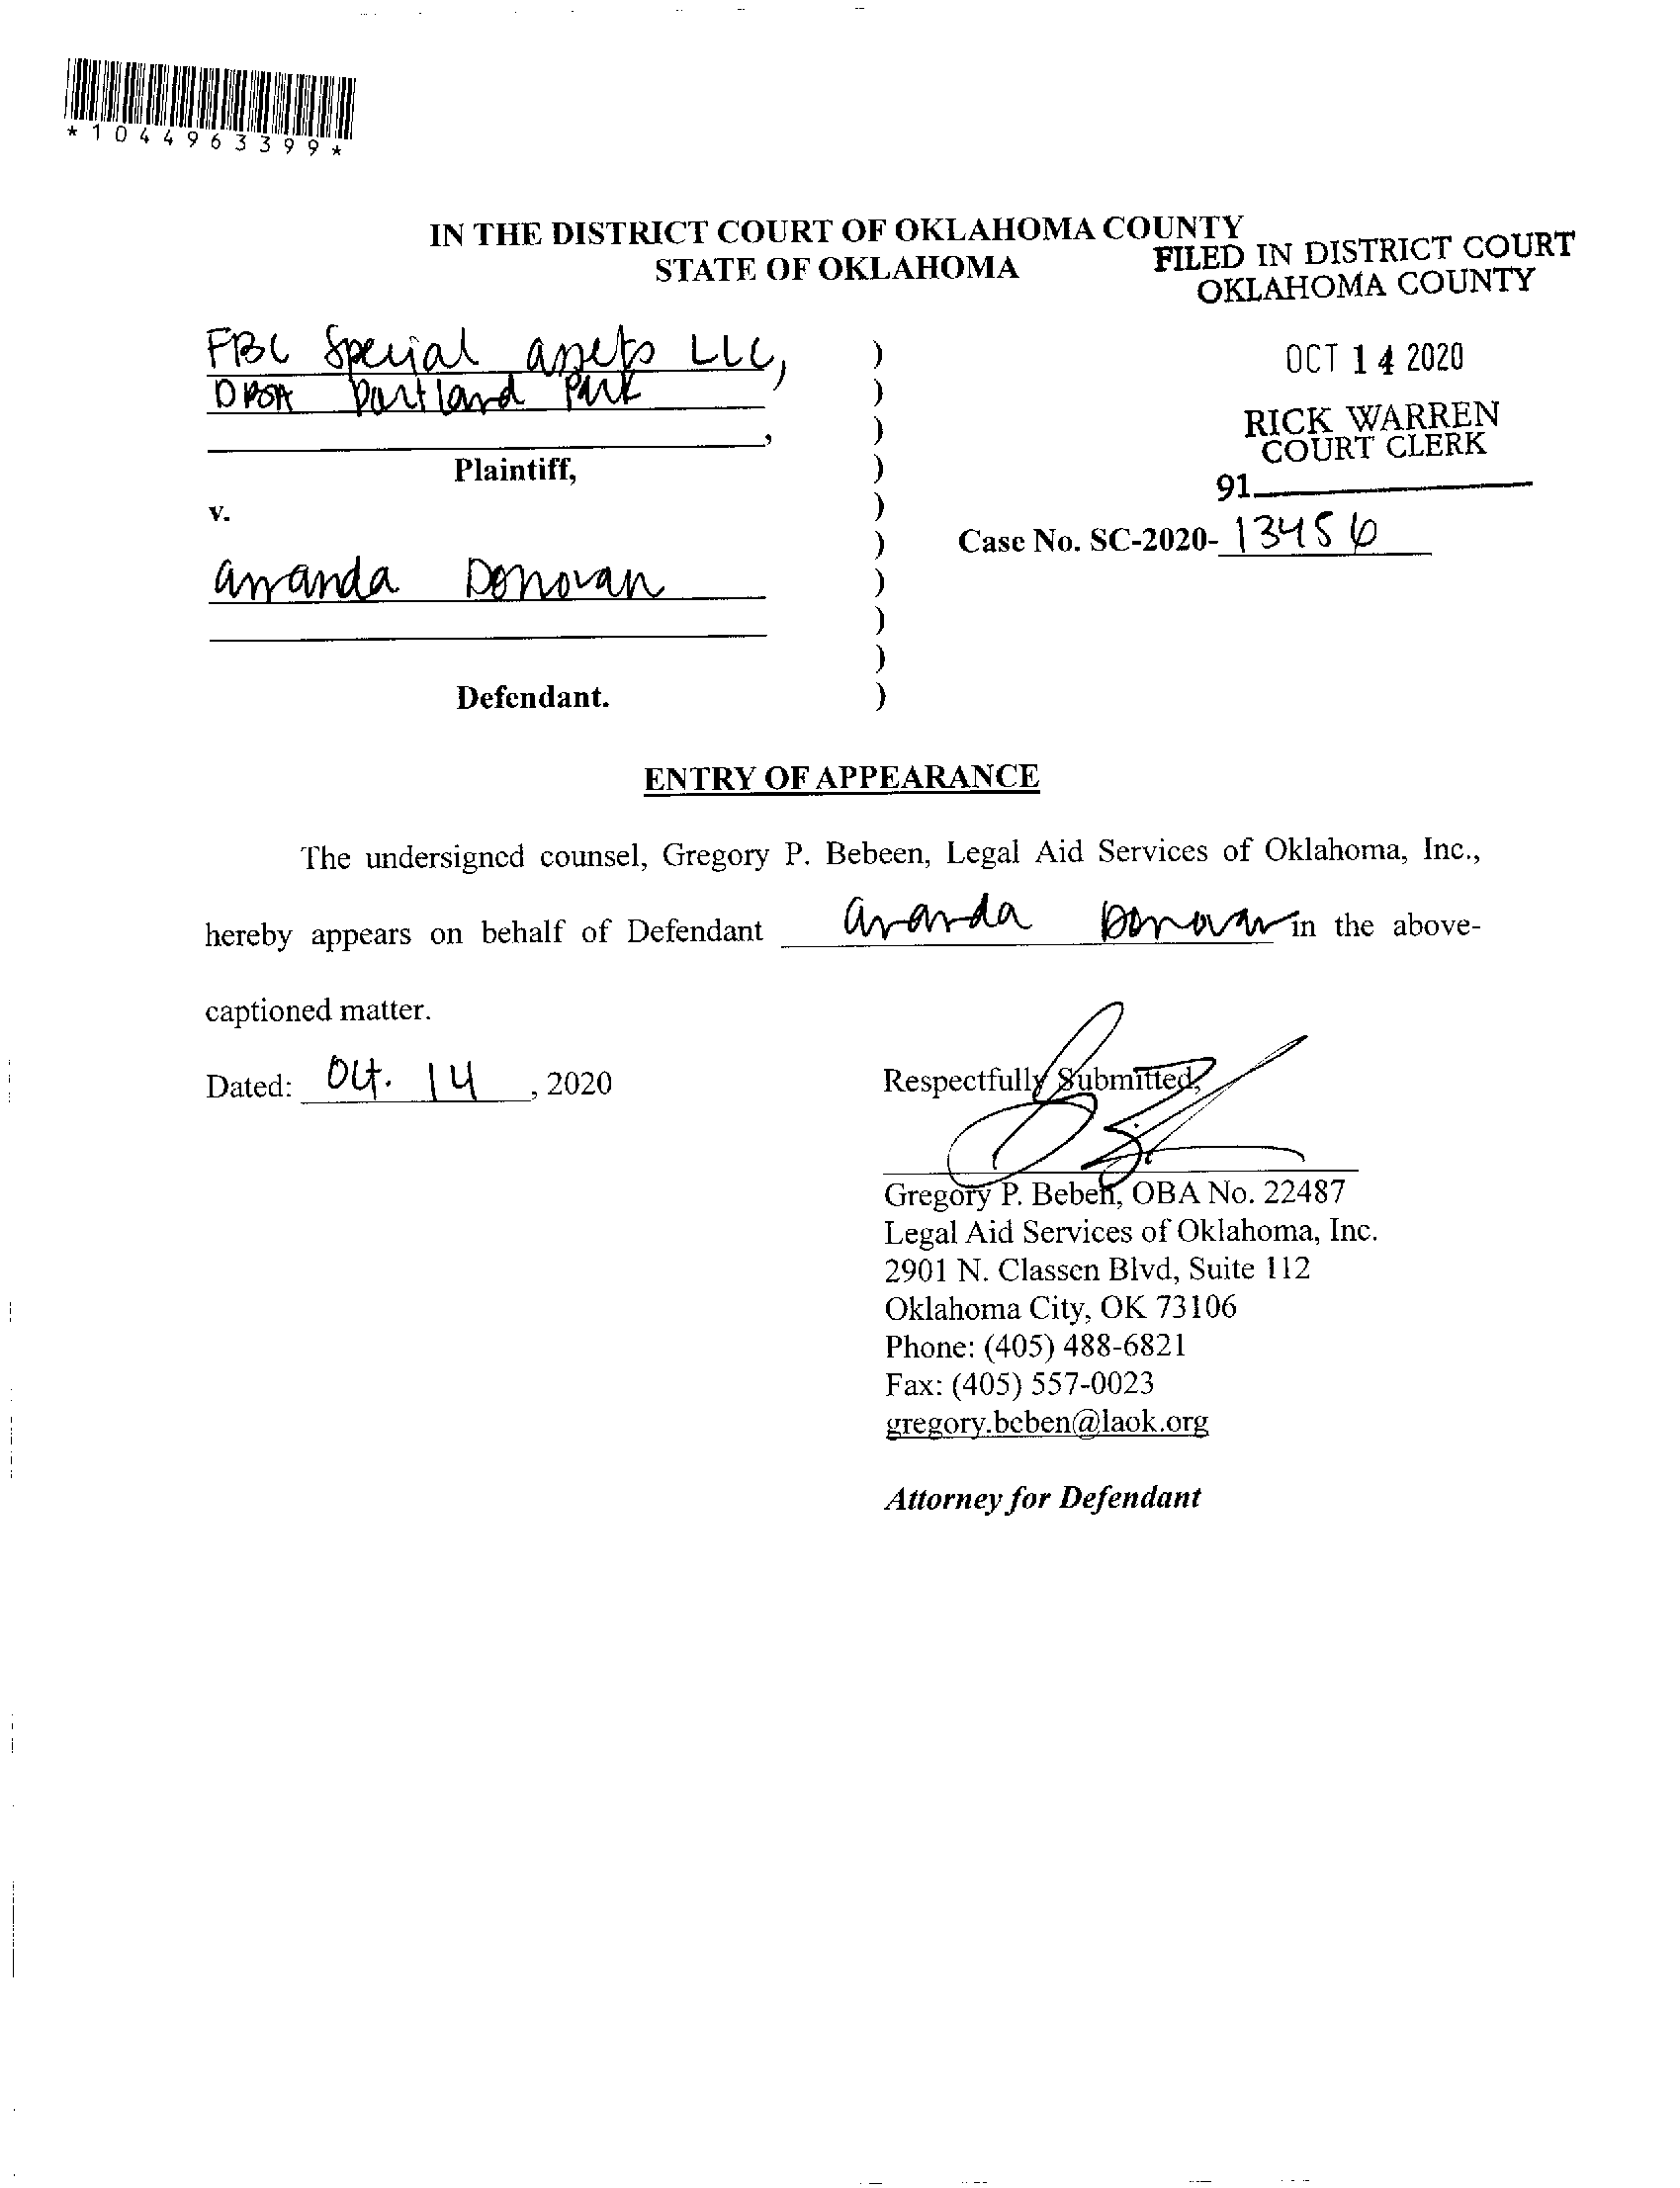 *1044963399*
IN THE DISTRICT COURT OF OKLAHOMA COUNTY
STATE OF OKLAHOMA
FILED IN DISTRICT COURT
OKLAHOMA COUNTY
OCT 14 2020
RICK WARREN
COURT CLERK
91
FBC Special assets LLC,
DBA Portland Park
,
Plaintiff,
v.
Case No. SC-2020- 13456
amanda Donovan
Defendant.
)
)
)
)
)
)
)
)
)
)
ENTRY OF APPEARANCE
The undersigned counsel, Gregory P. Bebeen, Legal Aid Services of Oklahoma, Inc.,
hereby appears on behalf of Defendant amanda Donovan in the above-
captioned matter.
Dated: Oct. 14, 2020
Respectfully Submitted,
Gregory P. Beben, OBA No. 22487
Legal Aid Services of Oklahoma, Inc.
2901 N. Classen Blvd, Suite 112
Oklahoma City, OK 73106
Phone: (405) 488-6821
Fax: (405) 557-0023
gregory.beben@laok.org
Attorney for Defendant